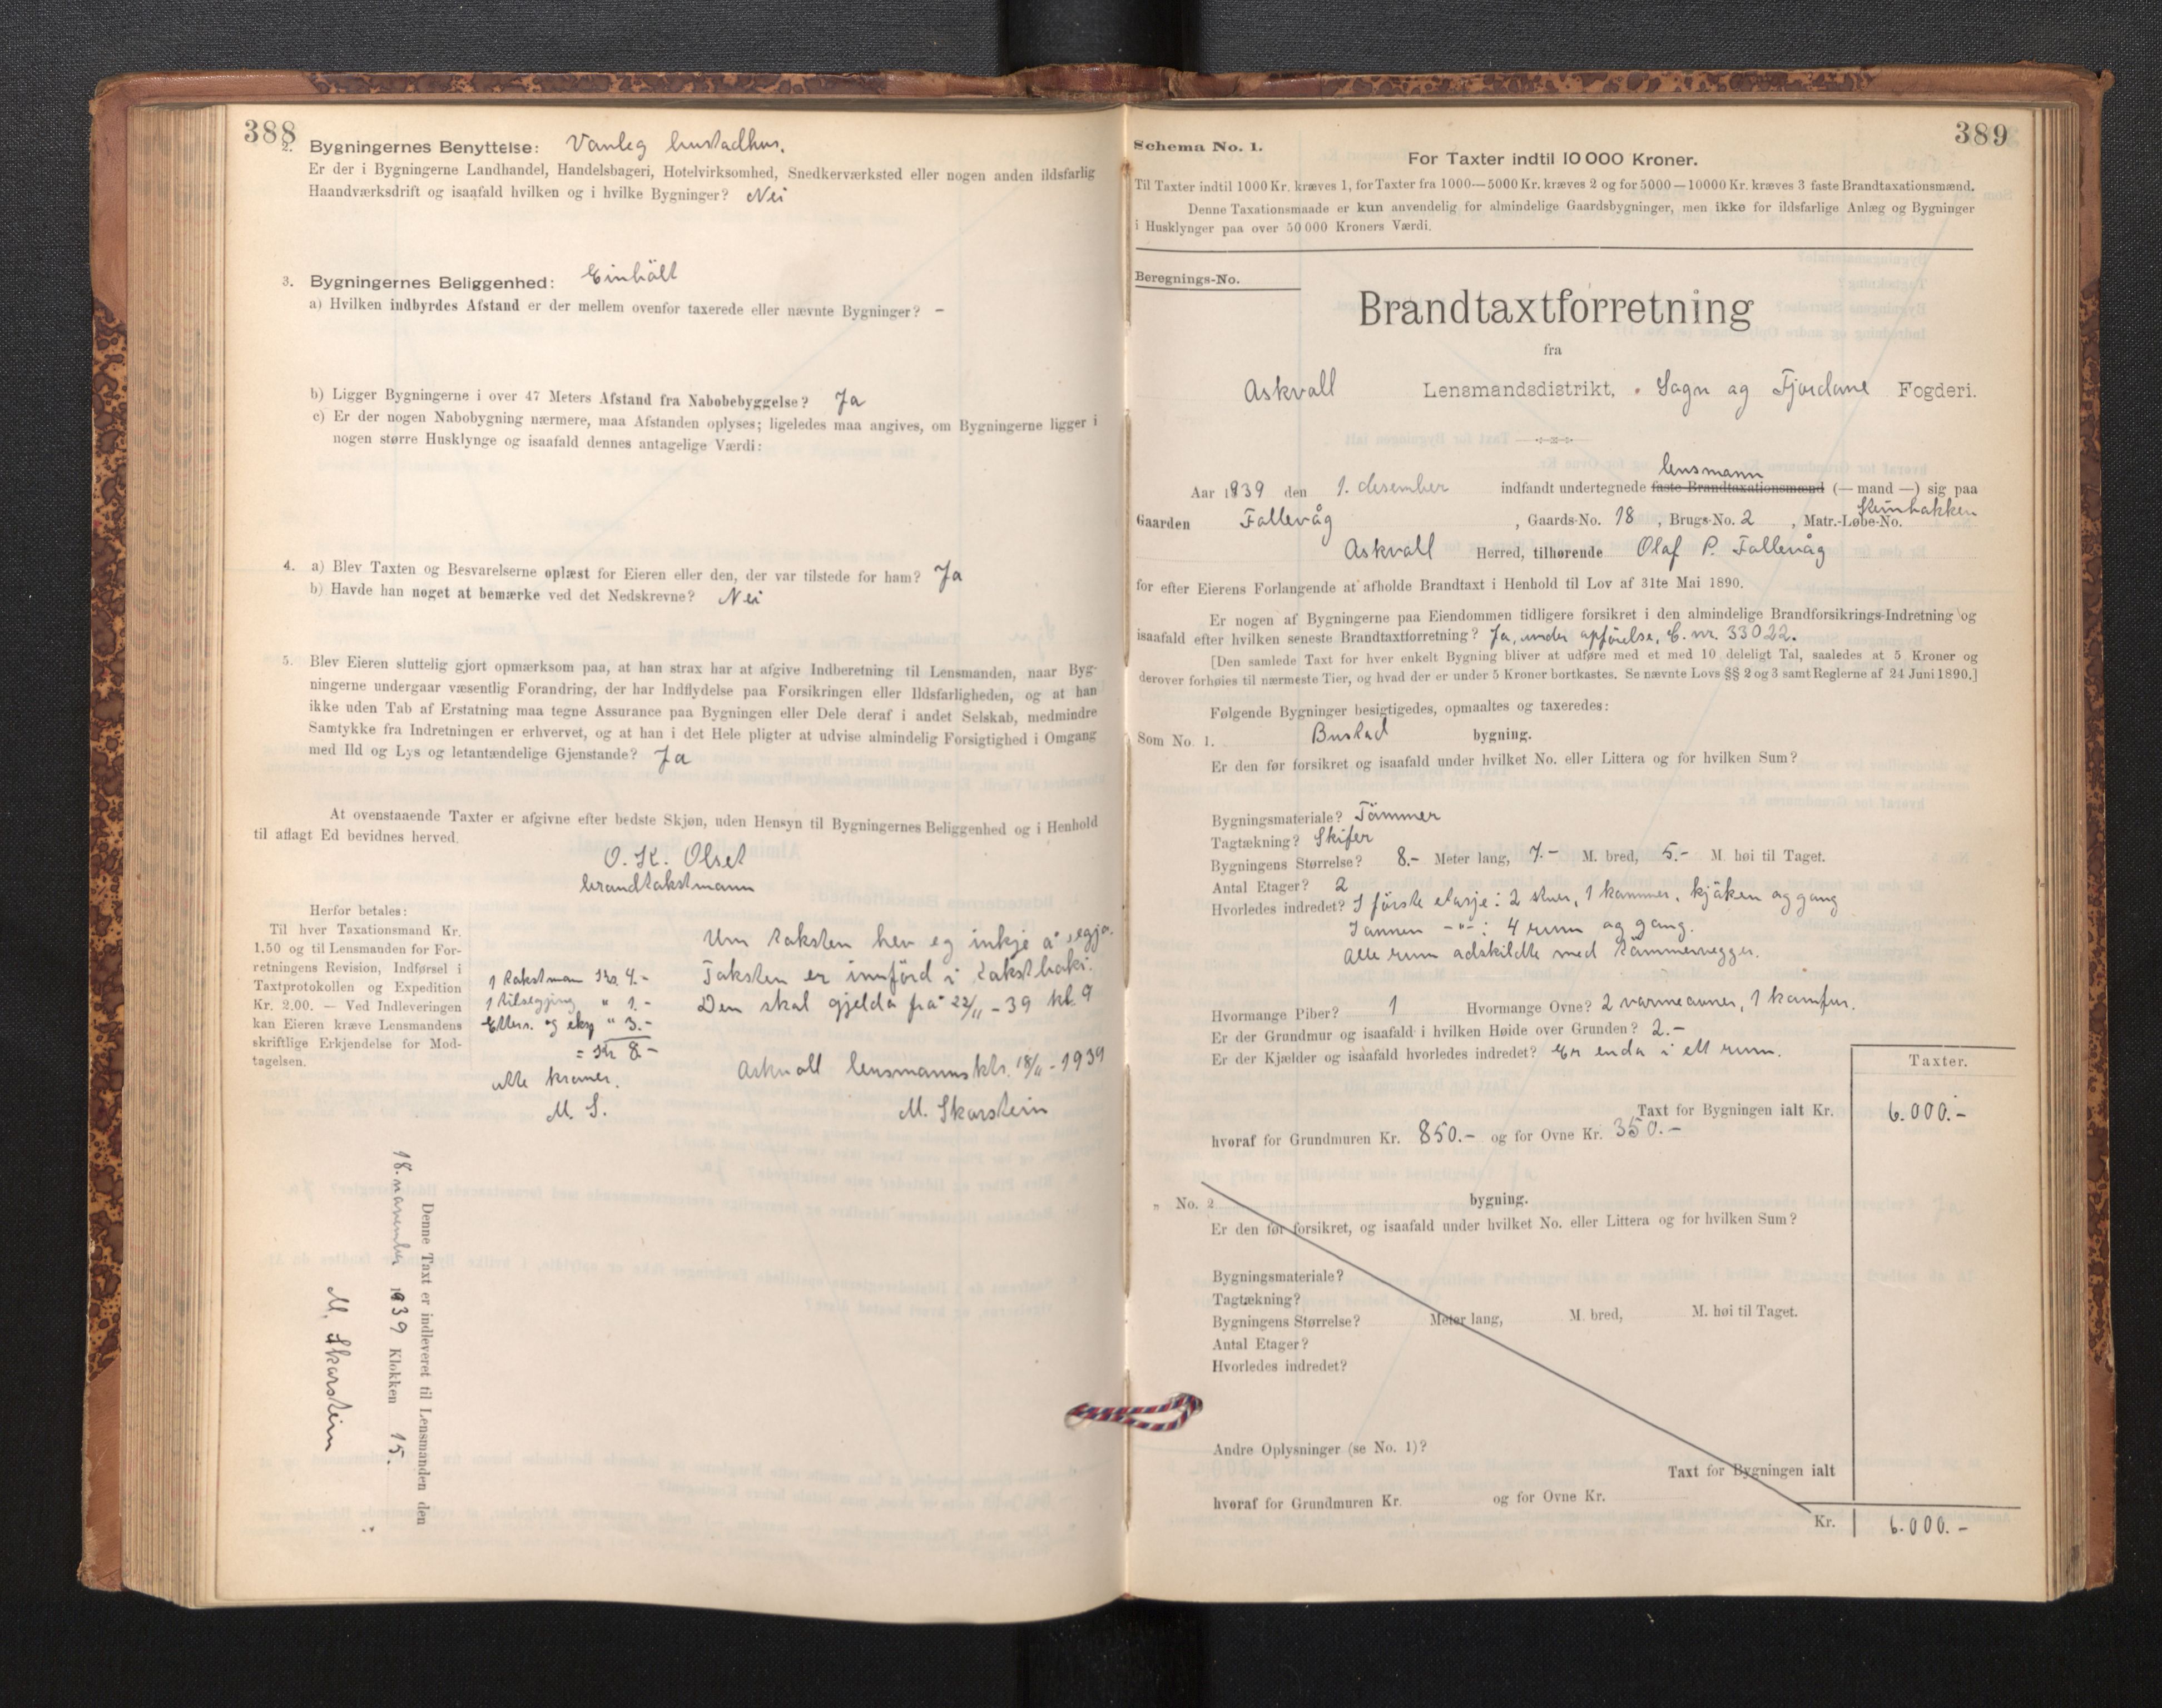 388
2. Bygningernes Benyttelse: Vanleg bustadhus.
Er der i Bygningerne Landhandel, Handelsbageri, Hotelvirksomhed, Snedkerværksted eller nogen anden ildsfarlig
Haandværksdrift og isaafald hvilken og i hvilke Bygninger? Nei
3. Bygningernes Beliggenhed: Einbölt
a) Hvilken indbyrdes Afstand er der mellem ovenfor taxerede eller nævnte Bygninger? –
b) Ligger Bygningerne i over 47 Meters Afstand fra Nabobebyggelse? Ja
c) Er der nogen Nabobygning nærmere, maa Afstanden oplyses; ligeledes maa angives, om Bygningerne ligger i
nogen større Husklynge og isaafald dennes antagelige Værdi:
4. a) Blev Taxten og Besvarelserne oplæst for Eieren eller den, der var tilstede for ham? Ja
b) Havde han noget at bemærke ved det Nedskrevne? Nei
5. Blev Eieren sluttelig gjort opmærksom paa, at han strax har at afgive Indberetning til Lensmanden, naar Byg-
ningerne undergaar væsentlig Forandring, der har Indflydelse paa Forsikringen eller Ildsfarligheden, og at han
ikke uden Tab af Erstatning maa tegne Assurance paa Bygningen eller Dele deraf i andet Selskab, medmindre
Samtykke fra Indretningen er erhvervet, og at han i det Hele pligter at udvise almindelig Forsigtighed i Omgang
med Ild og Lys og letantændelige Gjenstande? Ja
At ovenstaaende Taxter er afgivne efter bedste Skjøn, uden Hensyn til Bygningernes Beliggenhed og i Henhold
til aflagt Ed bevidnes herved.
O. K. Olset
brandtakstmann
Herfor betales:
Til hver Taxationsmand Kr.
1.50 og til Lensmanden for For-
retningens Revision, Indførsel i
Taxtprotokollen og Expedition
Kr. 2.00. — Ved Indleveringen
kan Eieren kræve Lensmandens
skriftlige Erkjendelse for Mod-
tagelsen.
1 takstman Kr. 4.-
1 tilsegjing " 1.-
Etters. og eksp " 3.-
= Kr 8-
åtte kroner.
M. S.
Um taksten hev eg inkje å segja.
Taksten er innförd i takstboki.
Den skal gjelda frå 22/11 - 39 kl. 9
Askvoll lensmannsktr. 18/11 - 1939
M. Skarstein
Denne Taxt er indleveret til Lensmanden den
18. november 1939 Klokken 15.
M. Skarstein
389
Schema No. 1.
For Taxter indtil 10 000 Kroner.
Til Taxter indtil 1000 Kr. kræves 1, for Taxter fra 1000—5000 Kr. kræves 2 og for 5000—10000 Kr. kræves 3 faste Brandtaxationsmænd.
Denne Taxationsmaade er kun anvendelig for almindelige Gaardsbygninger, men ikke for ildsfarlige Anlæg og Bygninger
i Husklynger paa over 50 000 Kroners Værdi.
Beregnings-No.
Brandtaxtforretning
fra
Askvoll Lensmandsdistrikt, Sogn og Fjordane Fogderi.
lensmann
Aar 1939 den 1. desember indfandt undertegnede faste Brandtaxationsmænd (— mand —) sig paa
Gaarden Follevåg, Gaards-No. 18, Brugs-No. 2, Matr.-Løbe-No. Steinbakken
Askvoll Herred, tilhørende Olaf P. Follevåg
for efter Eierens Forlangende at afholde Brandtaxt i Henhold til Lov af 31te Mai 1890.
Er nogen af Bygningerne paa Eiendommen tidligere forsikret i den almindelige Brandforsikrings-Indretning og
isaafald efter hvilken seneste Brandtaxtforretning? Ja, under opförelse, B. nr. 33022.
[Den samlede Taxt for hver enkelt Bygning bliver at udføre med et med 10 deleligt Tal, saaledes at 5 Kroner og
derover forhøies til nærmeste Tier, og hvad der er under 5 Kroner bortkastes. Se nævnte Lovs §§ 2 og 3 samt Reglerne af 24 Juni 1890.]
Følgende Bygninger besigtigedes, opmaaltes og taxeredes:
Som No. 1. Bustad bygning.
Er den før forsikret og isaafald under hvilket No. eller Littera og for hvilken Sum?
Bygningsmateriale? Tömmer
Tagtækning? Skifer
Bygningens Størrelse? 8.- Meter lang, 7.- M. bred, 5.- M. høi til Taget.
Antal Etager? 2
Hvorledes indredet? I förste etasje: 2 stuer, 1 kammer, kjöken og gang
I annen -"-: 4 rum og gang.
Alle rum adskildte med tömmervegger.
Hvormange Piber? 1 Hvormange Ovne? 2 varmeovner, 1 komfur.
Er der Grundmur og isaafald i hvilken Høide over Grunden? 2.-
Er der Kjælder og isaafald hvorledes indredet? Er enda i ett rum.
Taxter.
Taxt for Bygningen ialt Kr. 6.000.-
hvoraf for Grundmuren Kr. 850.- og for Ovne Kr. 350.-
" No. 2 bygning.
Er den før forsikret, og isaafald under hvilket No. eller Littera og for hvilken Sum?
Bygningsmateriale?
Tagtækning?
Bygningens Størrelse? Meter lang, M. bred, M. høi til Taget.
Antal Etager?
Hvorledes indredet?
Andre Oplysninger (se No. 1)?
Taxt for Bygningen ialt
hvoraf for Grundmuren Kr. og for Ovne Kr.
Kr. 6.000.-